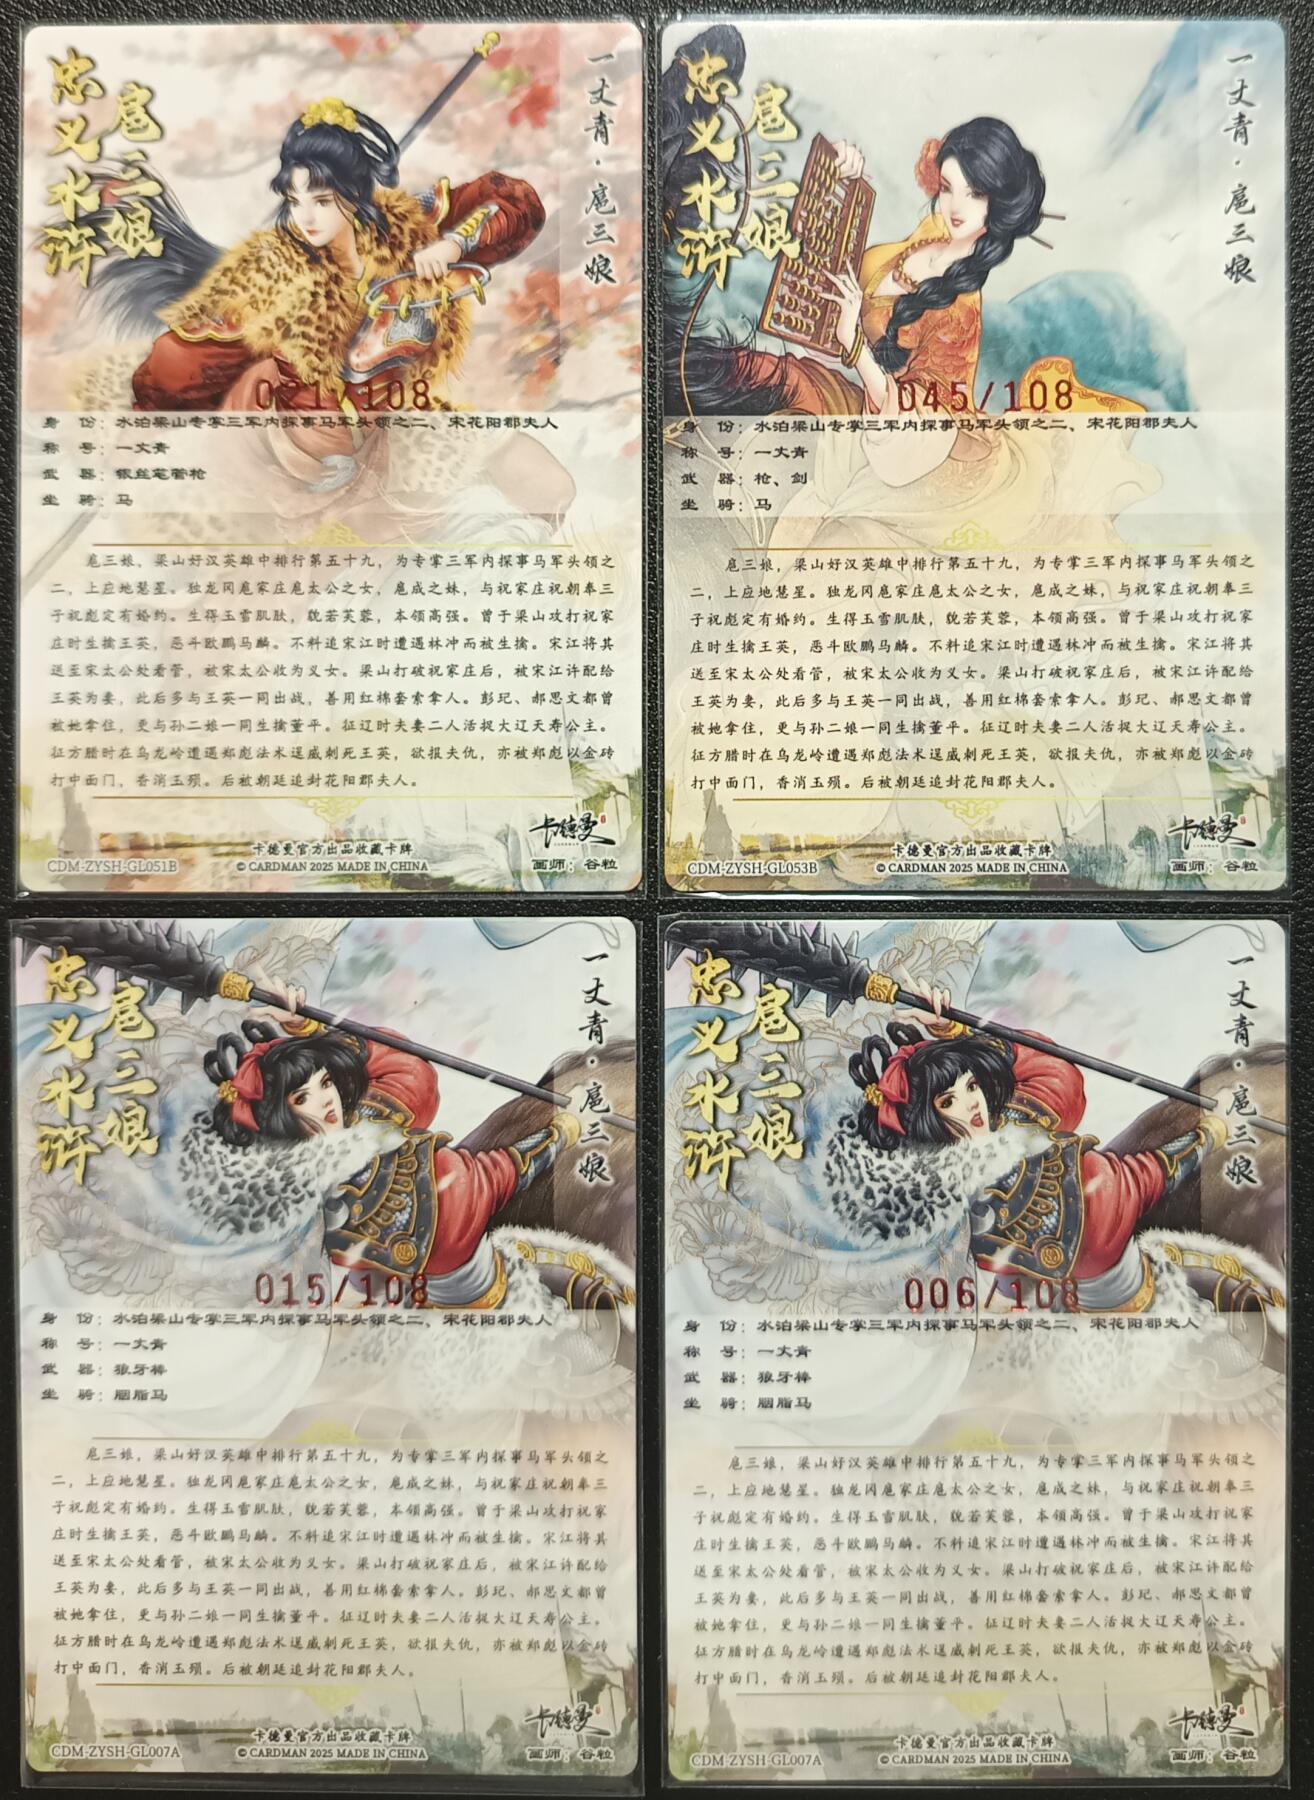 忠义水浒
扈三娘
一丈青·扈三娘
021/108
身 份：水泊梁山专掌三军内探事马军头领之二、宋花阳郡夫人
称 号：一丈青
武 器：银丝笔管枪
坐 骑：马
扈三娘，梁山好汉英雄中排行第五十九，为专掌三军内探事马军头领之
二，上应地慧星。独龙冈扈家庄扈太公之女，扈成之妹，与祝家庄祝朝奉三
子祝彪定有婚约。生得玉雪肌肤，貌若芙蓉，本领高强。曾于梁山攻打祝家
庄时生擒王英，恶斗欧鹏马麟。不料追宋江时遭遇林冲而被生擒。宋江将其
送至宋太公处看管，被宋太公收为义女。梁山打破祝家庄后，被宋江许配给
王英为妻，此后多与王英一同出战，善用红棉套索拿人。彭玘、郝思文都曾
被她拿住，更与孙二娘一同生擒董平。征辽时夫妻二人活捉大辽天寿公主。
征方腊时在乌龙岭遭遇郑彪法术逞威刺死王英，欲报夫仇，亦被郑彪以金砖
打中面门，香消玉殒。后被朝廷追封花阳郡夫人。
卡德曼
卡德曼官方出品收藏卡牌
CDM-ZYSH-GL051B
© CARDMAN 2025 MADE IN CHINA
画师：谷粒
忠义水浒
扈三娘
一丈青·扈三娘
045/108
身 份：水泊梁山专掌三军内探事马军头领之二、宋花阳郡夫人
称 号：一丈青
武 器：枪、剑
坐 骑：马
扈三娘，梁山好汉英雄中排行第五十九，为专掌三军内探事马军头领之
二，上应地慧星。独龙冈扈家庄扈太公之女，扈成之妹，与祝家庄祝朝奉三
子祝彪定有婚约。生得玉雪肌肤，貌若芙蓉，本领高强。曾于梁山攻打祝家
庄时生擒王英，恶斗欧鹏马麟。不料追宋江时遭遇林冲而被生擒。宋江将其
送至宋太公处看管，被宋太公收为义女。梁山打破祝家庄后，被宋江许配给
王英为妻，此后多与王英一同出战，善用红棉套索拿人。彭玘、郝思文都曾
被她拿住，更与孙二娘一同生擒董平。征辽时夫妻二人活捉大辽天寿公主。
征方腊时在乌龙岭遭遇郑彪法术逞威刺死王英，欲报夫仇，亦被郑彪以金砖
打中面门，香消玉殒。后被朝廷追封花阳郡夫人。
卡德曼
卡德曼官方出品收藏卡牌
CDM-ZYSH-GL053B
© CARDMAN 2025 MADE IN CHINA
画师：谷粒
忠义水浒
扈三娘
一丈青·扈三娘
015/108
身 份：水泊梁山专掌三军内探事马军头领之二、宋花阳郡夫人
称 号：一丈青
武 器：狼牙棒
坐 骑：胭脂马
扈三娘，梁山好汉英雄中排行第五十九，为专掌三军内探事马军头领之
二，上应地慧星。独龙冈扈家庄扈太公之女，扈成之妹，与祝家庄祝朝奉三
子祝彪定有婚约。生得玉雪肌肤，貌若芙蓉，本领高强。曾于梁山攻打祝家
庄时生擒王英，恶斗欧鹏马麟。不料追宋江时遭遇林冲而被生擒。宋江将其
送至宋太公处看管，被宋太公收为义女。梁山打破祝家庄后，被宋江许配给
王英为妻，此后多与王英一同出战，善用红棉套索拿人。彭玘、郝思文都曾
被她拿住，更与孙二娘一同生擒董平。征辽时夫妻二人活捉大辽天寿公主。
征方腊时在乌龙岭遭遇郑彪法术逞威刺死王英，欲报夫仇，亦被郑彪以金砖
打中面门，香消玉殒。后被朝廷追封花阳郡夫人。
卡德曼
卡德曼官方出品收藏卡牌
CDM-ZYSH-GL007A
© CARDMAN 2025 MADE IN CHINA
画师：谷粒
忠义水浒
扈三娘
一丈青·扈三娘
006/108
身 份：水泊梁山专掌三军内探事马军头领之二、宋花阳郡夫人
称 号：一丈青
武 器：狼牙棒
坐 骑：胭脂马
扈三娘，梁山好汉英雄中排行第五十九，为专掌三军内探事马军头领之
二，上应地慧星。独龙冈扈家庄扈太公之女，扈成之妹，与祝家庄祝朝奉三
子祝彪定有婚约。生得玉雪肌肤，貌若芙蓉，本领高强。曾于梁山攻打祝家
庄时生擒王英，恶斗欧鹏马麟。不料追宋江时遭遇林冲而被生擒。宋江将其
送至宋太公处看管，被宋太公收为义女。梁山打破祝家庄后，被宋江许配给
王英为妻，此后多与王英一同出战，善用红棉套索拿人。彭玘、郝思文都曾
被她拿住，更与孙二娘一同生擒董平。征辽时夫妻二人活捉大辽天寿公主。
征方腊时在乌龙岭遭遇郑彪法术逞威刺死王英，欲报夫仇，亦被郑彪以金砖
打中面门，香消玉殒。后被朝廷追封花阳郡夫人。
卡德曼
卡德曼官方出品收藏卡牌
CDM-ZYSH-GL007A
© CARDMAN 2025 MADE IN CHINA
画师：谷粒